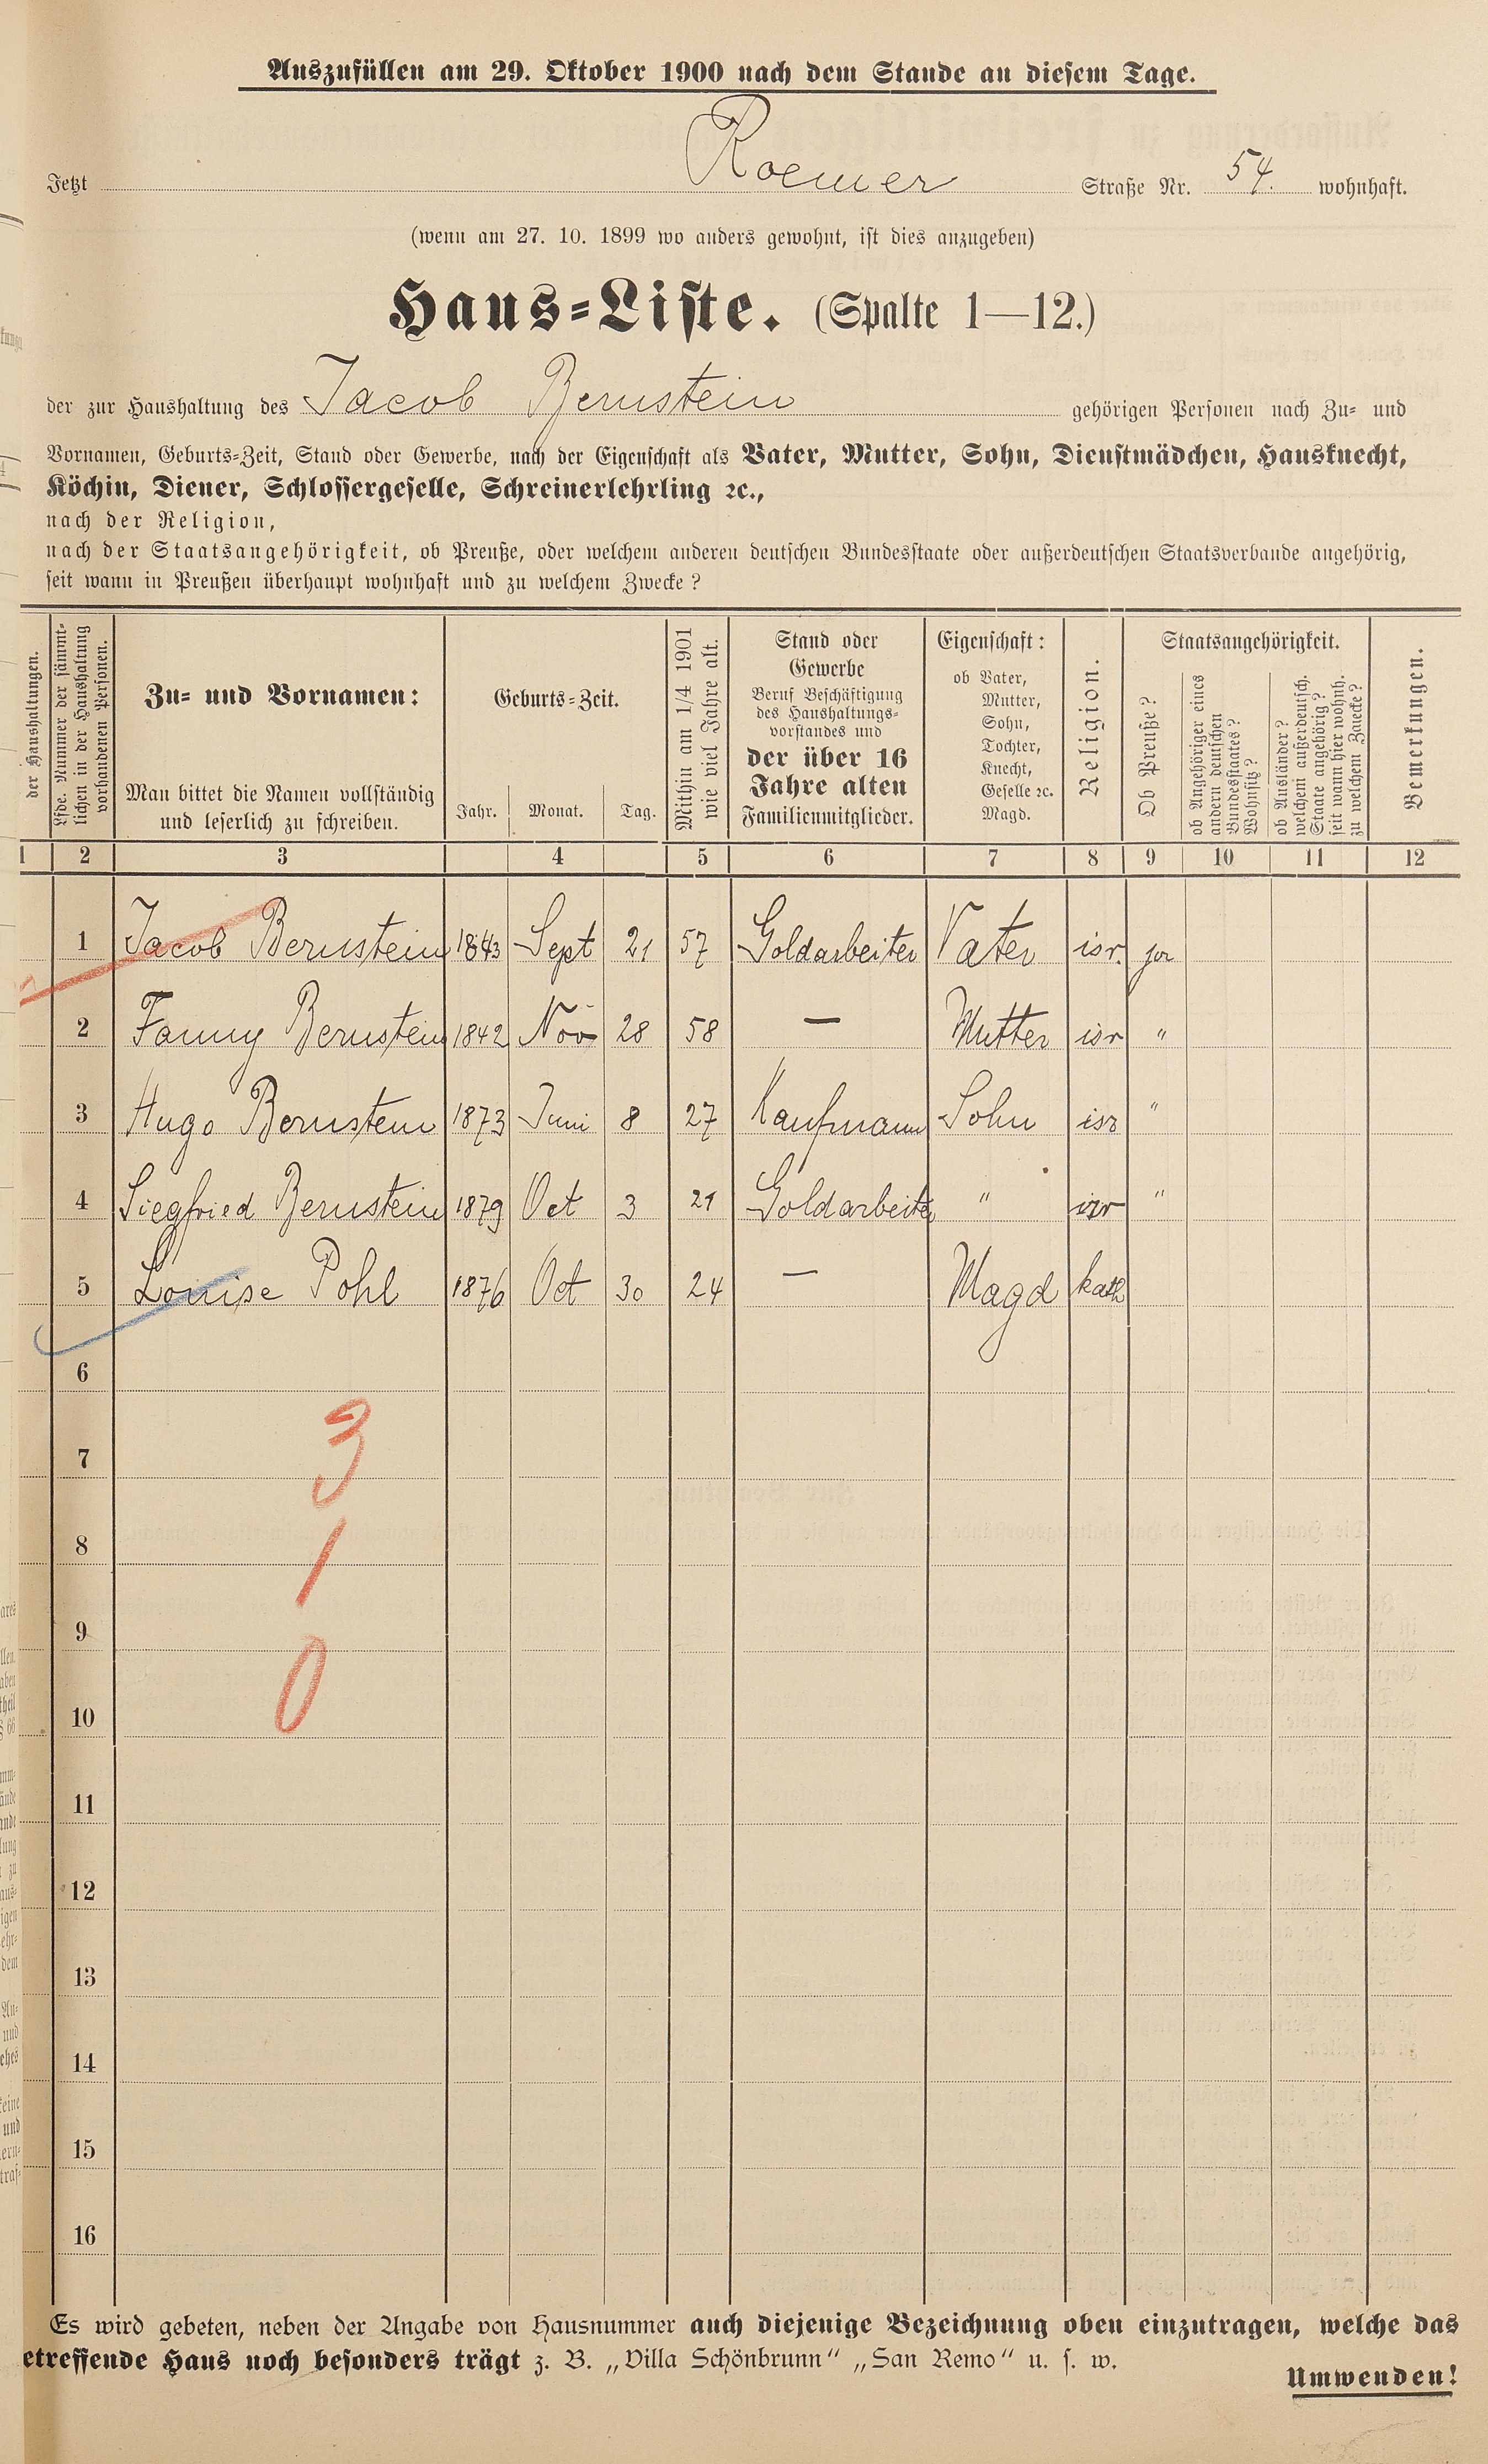 Auszufüllen am 29. Oktober 1900 nach dem Stande an diesem Tage.
Jetzt Roemer Straße Nr. 54. wohnhaft.
(wenn am 27. 10. 1899 wo anders gewohnt, ist dies anzugeben)
Haus-Liste. (Spalte 1—12.)
der zur Haushaltung des Jacob Bernstein gehörigen Personen nach Zu- und
Vornamen, Geburts-Zeit, Stand oder Gewerbe, nach der Eigenschaft als Vater, Mutter, Sohn, Dienstmädchen, Hausknecht,
Köchin, Diener, Schlossergeselle, Schreinerlehrling ꝛc.,
nach der Religion,
nach der Staatsangehörigkeit, ob Preuße, oder welchem anderen deutschen Bundesstaate oder außerdeutschen Staatsverbande angehörig,
seit wann in Preußen überhaupt wohnhaft und zu welchem Zwecke?
der Haushaltungen.
Lfde. Nummer der sämmt-
lichen in der Haushaltung
vorhandenen Personen.
Zu- und Vornamen:
Man bittet die Namen vollständig
und leserlich zu schreiben.
Geburts-Zeit.
Jahr. Monat. Tag.
Mithin am 1/4 1901
wie viel Jahre alt.
Stand oder
Gewerbe
Beruf Beschäftigung
des Haushaltungs-
vorstandes und
der über 16
Jahre alten
Familienmitglieder.
Eigenschaft:
ob Vater,
Mutter,
Sohn,
Tochter,
Knecht,
Geselle ꝛc.
Magd.
Religion.
Staatsangehörigkeit.
Ob Preuße?
ob Angehöriger eines
andern deutschen
Bundesstaates?
Wohnsitz?
ob Ausländer?
welchem außerdeutsch.
Staate angehörig?
seit wann hier wohnh.
zu welchem Zwecke?
Bemerkungen.
1 2 3 4 5 6 7 8 9 10 11 12
1 Jacob Bernstein 1843 Sept 21 57 Goldarbeiter Vater isr. ja
2 Fanny Bernstein 1842 Nov 28 58 — Mutter isr "
3 Hugo Bernstein 1873 Juni 8 27 Kaufmann Sohn isr "
4 Siegfried Bernstein 1879 Oct 3 21 Goldarbeiter " isr "
5 Louise Pohl 1876 Oct 30 24 — Magd kath
6
7 3
8 1
9
10 0
11
12
13
14
15
16
Es wird gebeten, neben der Angabe von Hausnummer auch diejenige Bezeichnung oben einzutragen, welche das
etreffende Haus noch besonders trägt z. B. „Villa Schönbrunn“ „San Remo“ u. s. w.
Umwenden!